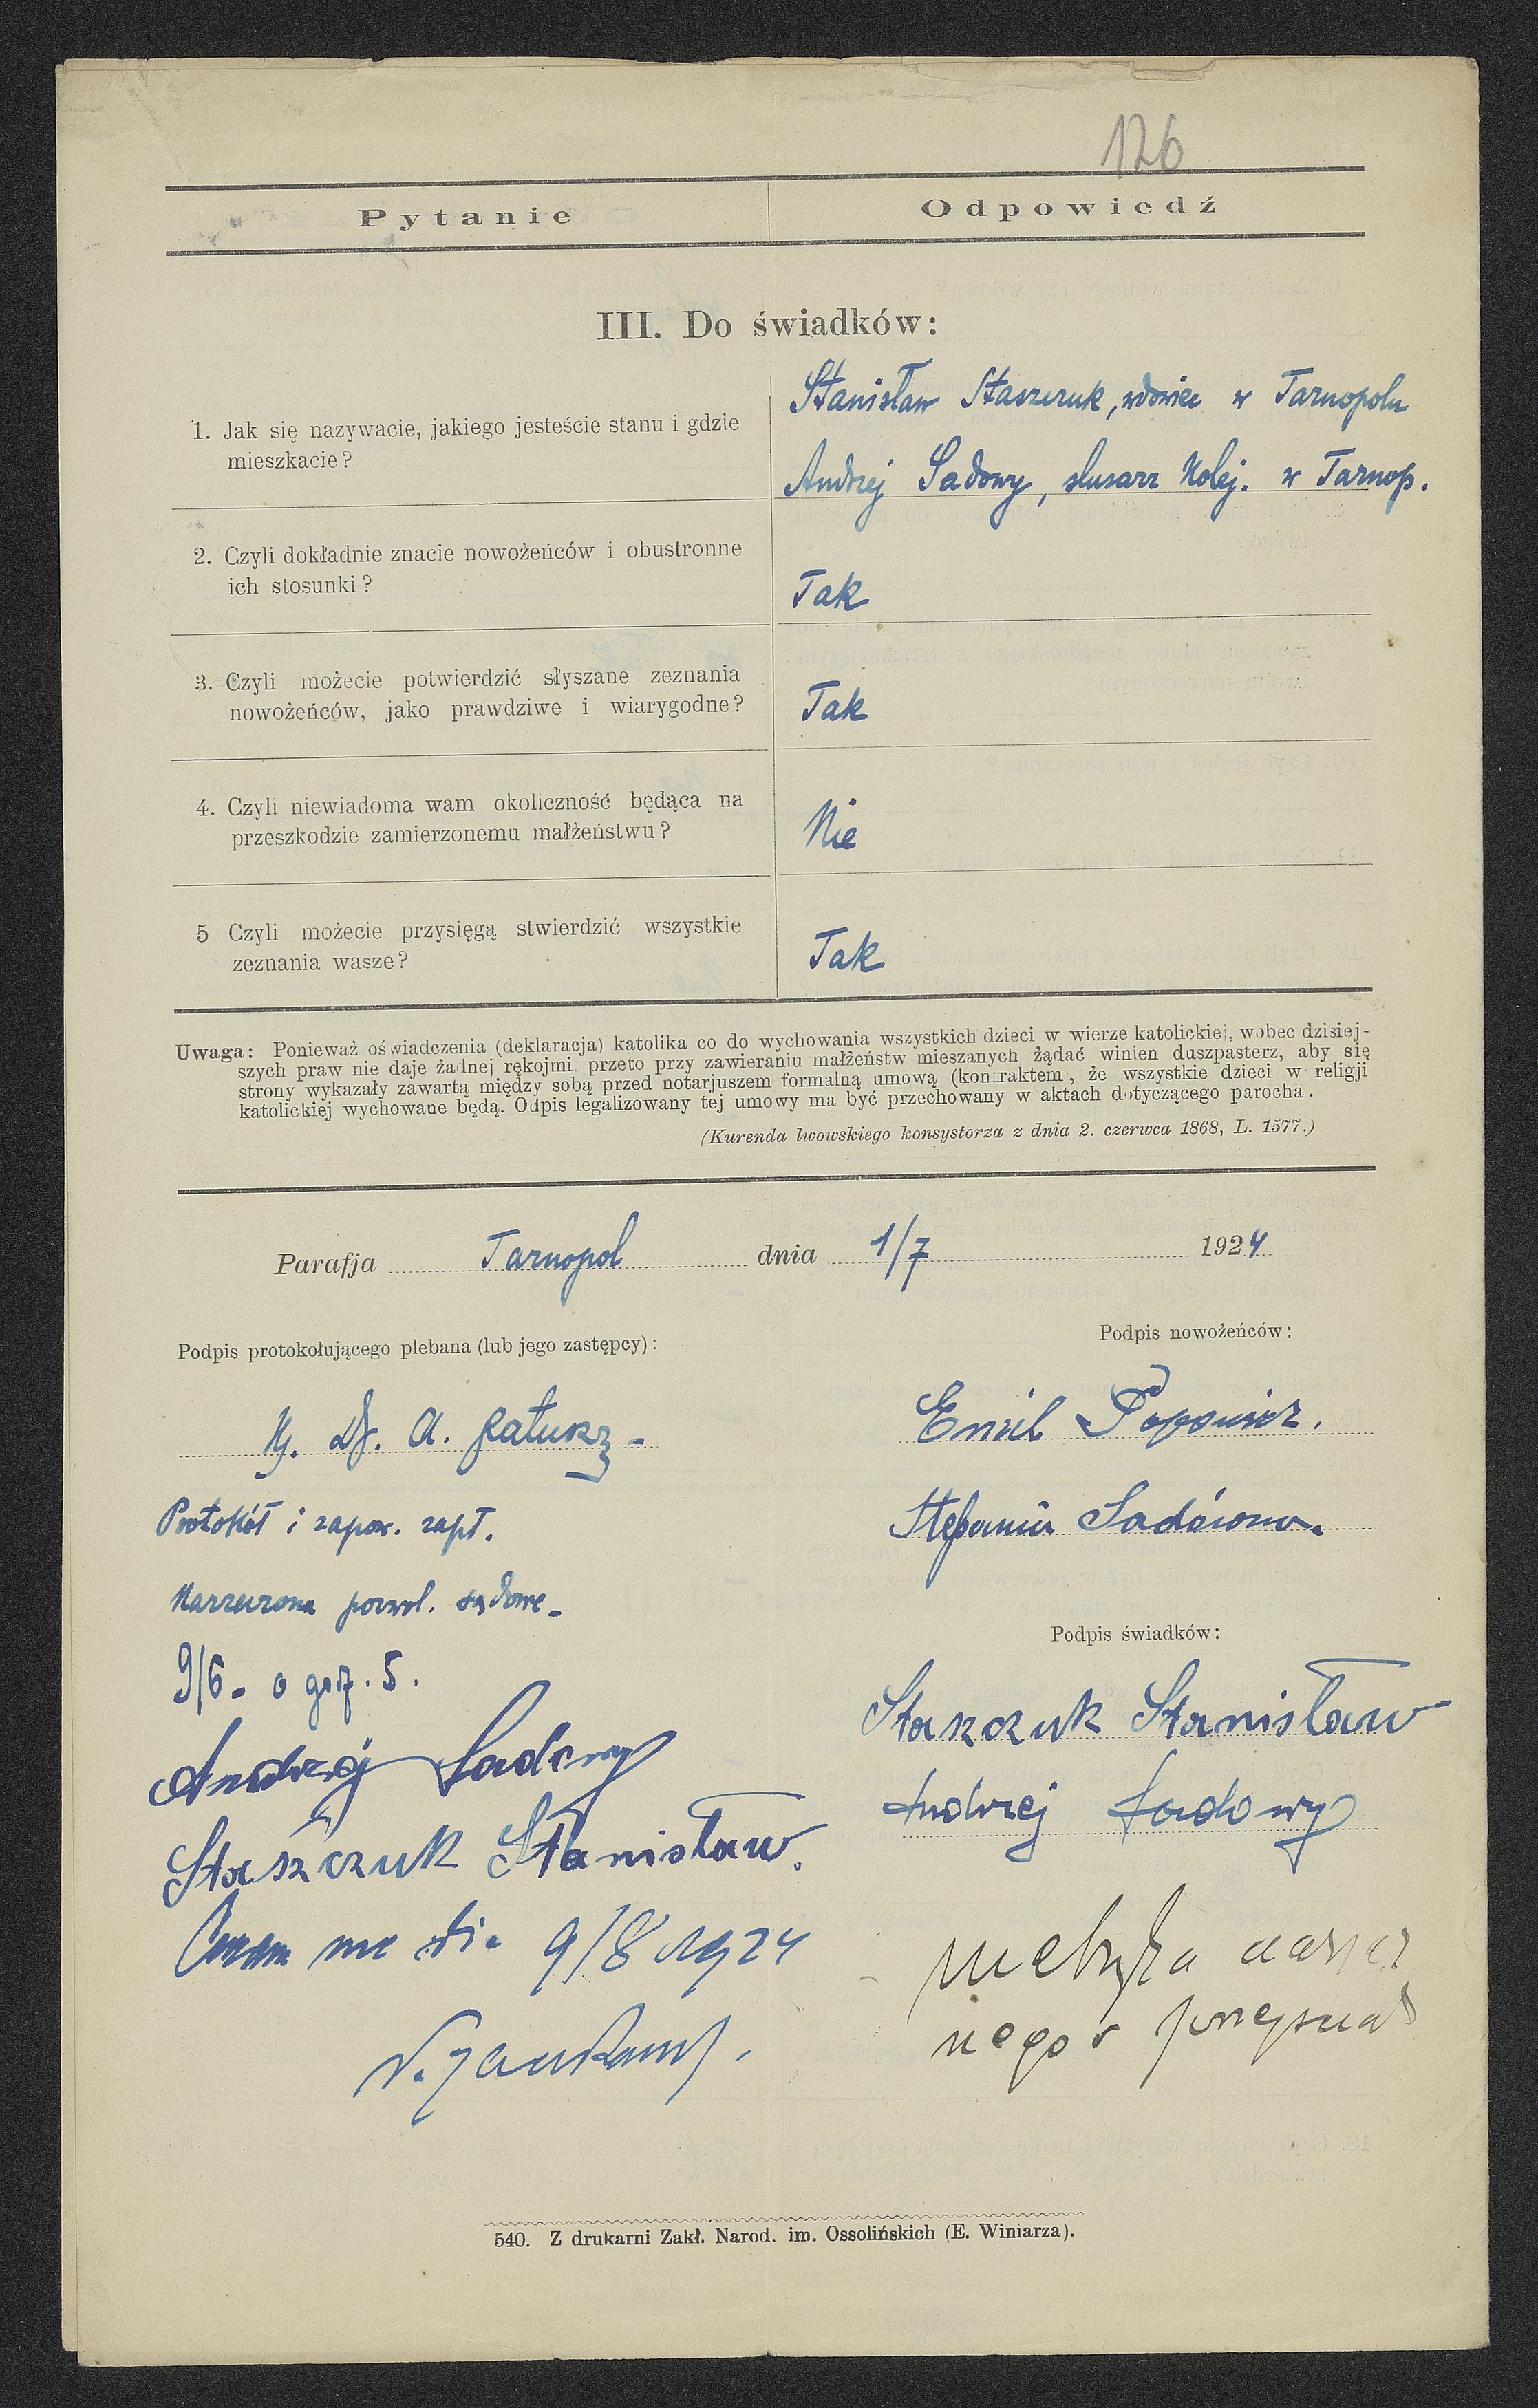 126
Pytanie Odpowiedź
III. Do świadków:
1. Jak się nazywacie, jakiego jesteście stanu i gdzie
mieszkacie?
Stanisław Staszczuk, wdowiec w Tarnopolu
Andrzej Sadowy, slusarz Kolej. w Tarnop.
2. Czyli dokładnie znacie nowożeńców i obustronne
ich stosunki?
Tak
3. Czyli możecie potwierdzić słyszane zeznania
nowożeńców, jako prawdziwe i wiarygodne?
Tak
4. Czyli niewiadoma wam okoliczność będąca na
przeszkodzie zamierzonemu małżeństwu?
Nie
5 Czyli możecie przysięgą stwierdzić wszystkie
zeznania wasze?
Tak
Uwaga: Ponieważ oświadczenia (deklaracja) katolika co do wychowania wszystkich dzieci w wierze katolickiej, wobec dzisiej-
szych praw nie daje żadnej rękojmi przeto przy zawieraniu małżeństw mieszanych żądać winien duszpasterz, aby się
strony wykazały zawartą między sobą przed notarjuszem formalną umową (kontraktem, że wszystkie dzieci w religji
katolickiej wychowane będą. Odpis legalizowany tej umowy ma być przechowany w aktach dotyczącego parocha.
(Kurenda lwowskiego konsystorza z dnia 2. czerwca 1868, L. 1577.)
Parafja Tarnopol dnia 1/7 1924
Podpis protokołującego plebana (lub jego zastępcy):
Podpis nowożeńców:
A.
Emil
Protokół i zapow. zapł.
Stefania
pozwol. sądowe
Podpis świadków:
9/6 - o godz. 5.
Staszczuk Stanisław
Andrzej Sadowy
Andrzej Sadowy
Staszczuk Stanisław.
9/8 1924
540. Z drukarni Zakł. Narod. im. Ossolińskich (E. Winiarza).